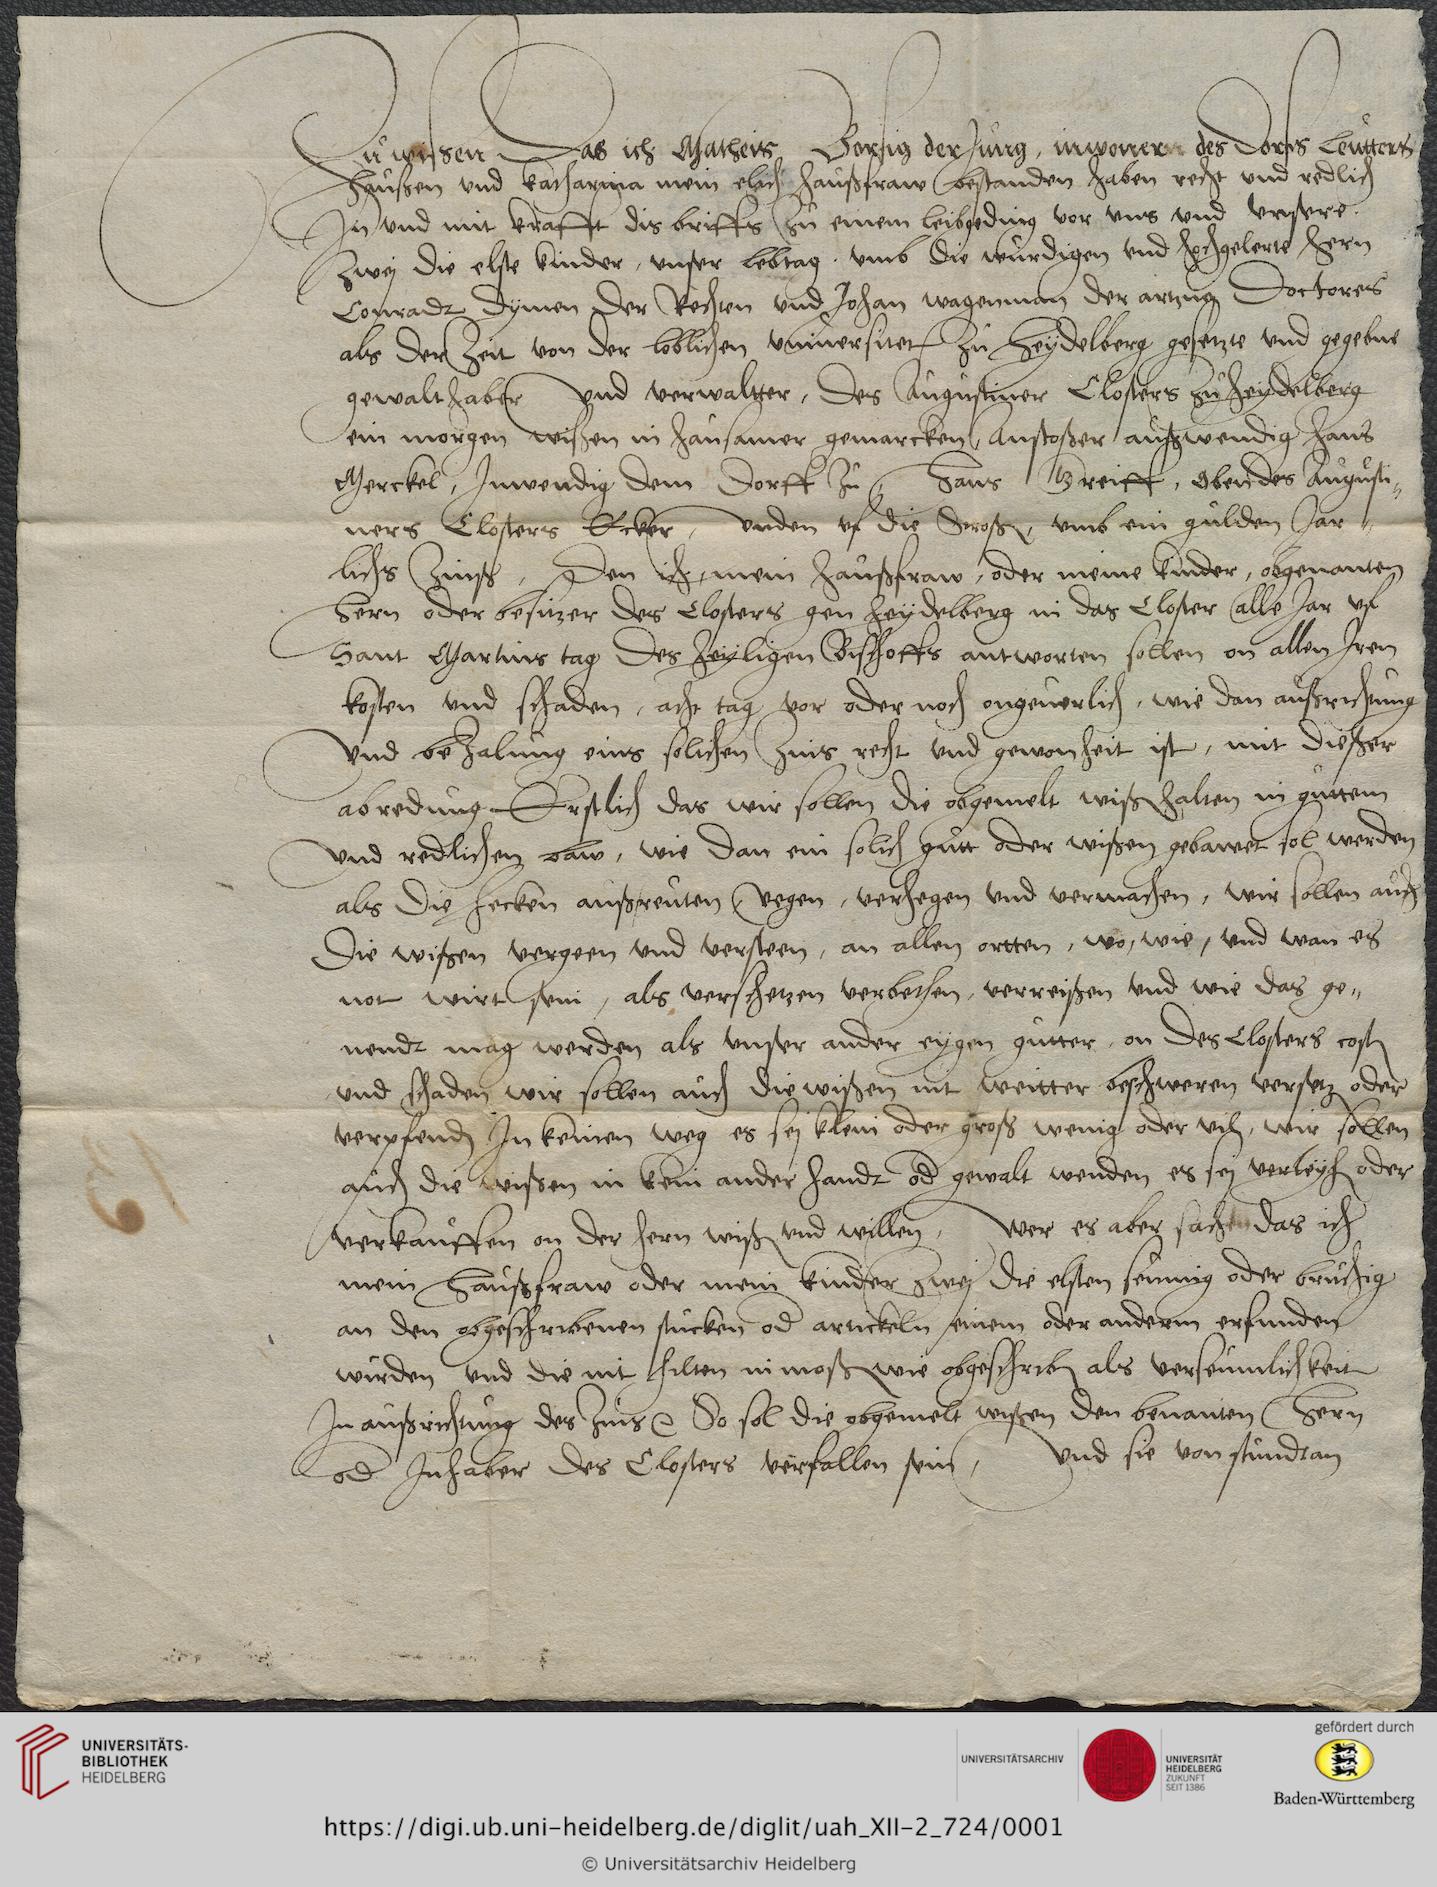 Zu wissen Das ich Matheis der Jung, inwoner des Dorfs Leutters
haußen und katharina mein elich haußfraw bestanden haben recht und redlich
In und mit krafft dis briffs zu einem leibgeding vor uns und unsere
zwej die elste kinder, unser lebtag. umb die wurdigen und hochgelerte hern
Conradt Dymen der Rechten und Johan wagenman der artzney Doctores
als der Zeit von der loblichen universitet zu Heydelberg gesetzte und gegebne
gewalthaber und verwaltter, des Augustiner Closters zu heydelberg
ein morgen wißen in haussamer gemarcken, Anstoßer außwendig hans
Merckel, Inwendig dem Dorff zu, Hans Greiff, Oben des Augusti„
ners Closters Ecker, unden uf die stroß, umb ein gulden Jar„
lichs Zinß, Den ich, mein haußfraw, oder meine kinder, obgenanten
Hern oder besitzer des Closters gen heydelberg in das Closter alle Jar uf
Sant Martins tag des heyligen Bischoffs antworten sollen on allen Iren
kosten und schaden, acht tag vor oder noch ongeuerlich, wie dan außrichtung
und bezalung eins solichen Zins recht und gewonheit ist, mit dießer
abredung. Erstlich das wir sollen die obgemelt wiß halten in guttem
und redlichen baw, wie dan ein solich gutt oder wißen gebawet sol werden
als die hecken außreuten, vegen, verhegen und vermachen, wir sollen auch
Die wißen vergeen und versteen, an allen ortten, wo, wie, und wan es
not wirt sein, als verschetzen verbethen, verreißen und wie das ge„
nendt mag werden als unser ander eygen gutter, on des Closters cost
und schaden, wir sollen auch die wißen nit weitter beschweren versetz oder
verpfend In keinen weg es sej klein oder groß wenig oder vil, wir sollen
auch die wißen in kein ander handt od gewalt wenden es sej verleyh oder
verkauffen on der hern wiß und willen, Wer es aber sach das ich
mein Haußfraw oder mein kinder zwej die elsten seumig oder bruchig
an den obgeschribenen stucken od artickeln einem oder anderm erfunden
wurden und die nit hilten in moß wie obgeschriben als verseumlichkeit
In außrichtung des Zins So sol die obgemelt wißen den benanten Hern
od Inhaber des Closters verfallen sein, und sie von stundt an
UNIVERSITÄTS-
BIBLIOTHEK
HEIDELBERG
UNIVERSITÄTSARCHIV
UNIVERSITÄT
HEIDELBERG
ZUKUNFT
SEIT 1386
gefördert durch
Baden-Württemberg
https://digi.ub.uni-heidelberg.de/diglit/uah_XII-2_724/0001
© Universitätsarchiv Heidelberg